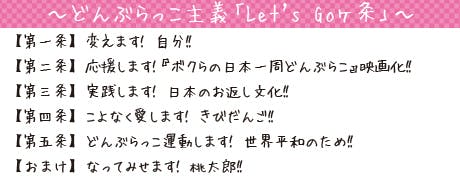 ～どんぶらっこ主義「Let's Go㋘条」～
【第一条】変えます! 自分!!
【第二条】応援します!『ボクらの日本一周どんぶらこ』映画化!!
【第三条】実践します! 日本のお返し文化!!
【第四条】こよなく愛します! きびだんご!!
【第五条】どんぶらっこ運動します! 世界平和のため!!
【おまけ】なってみせます! 桃太郎!!